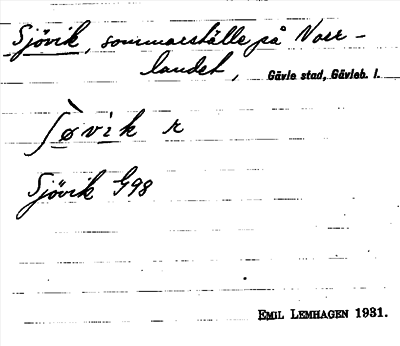 Sjövik, sommarställe på Norr-
landet, Gävle stad, Gävleb. l.
ʃøvik r
Sjövik G98
EMIL LEMHAGEN 1931.